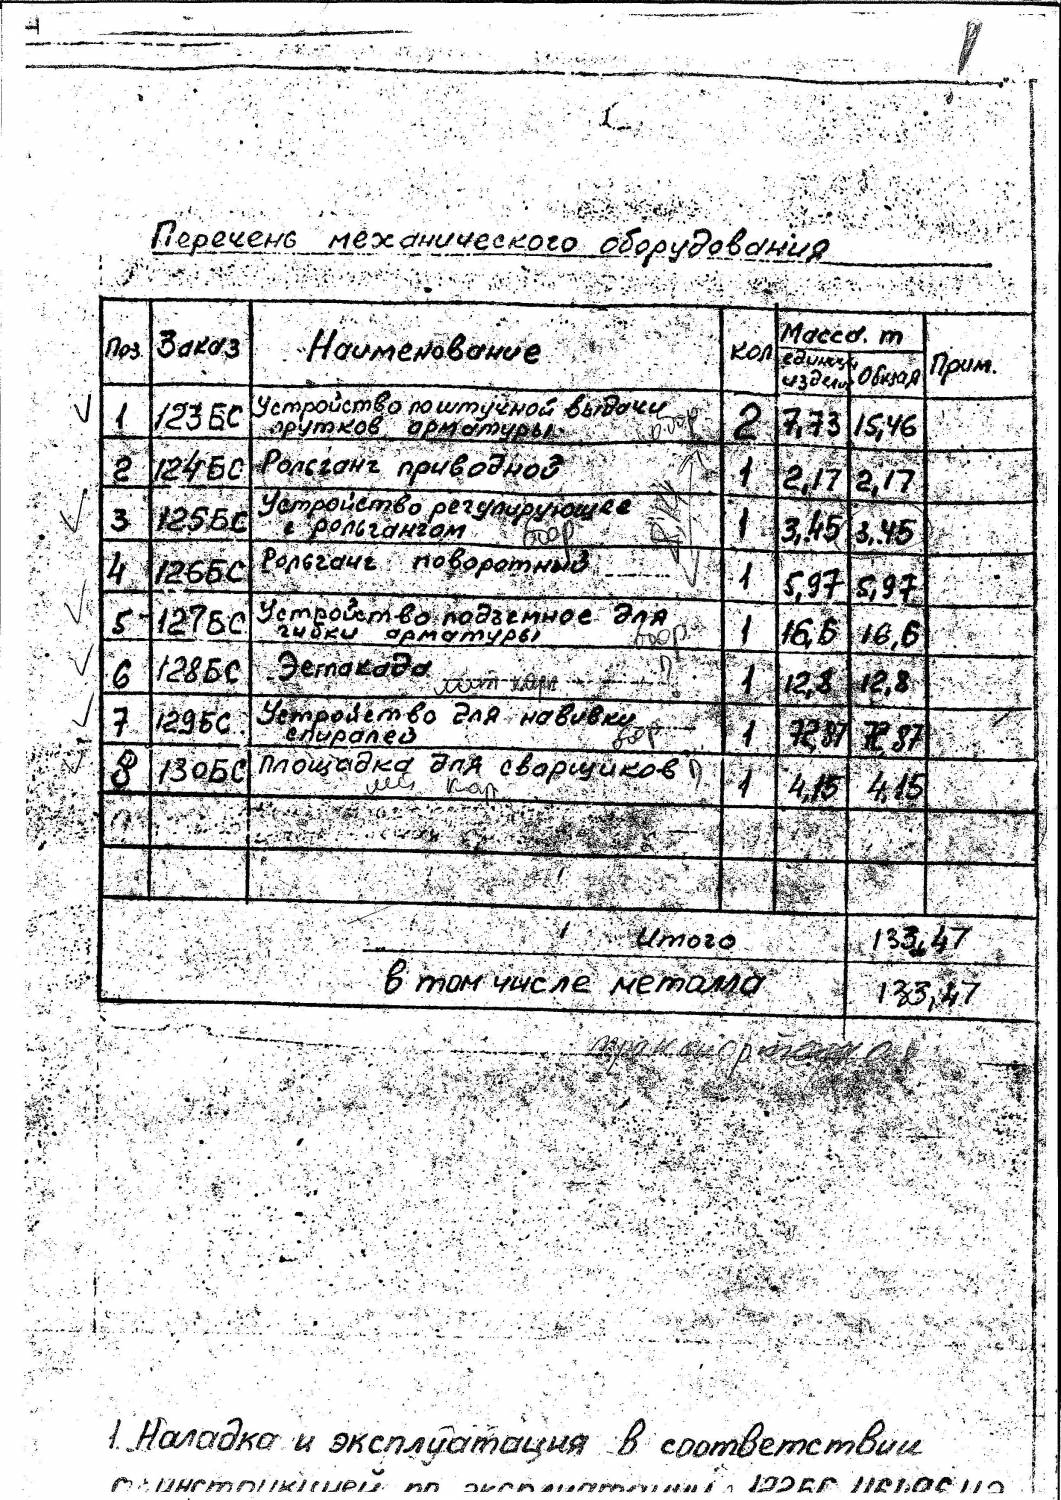 Перечень механического оборудования
Поз. Заказ Наименование кол Масса. т Прим.
единицы изделия Общая
1 123БС Устройство поштучной выдачи 2 7,73 15,46
прутков арматуры
2 124БС Рольганг приводной 1 2,17 2,17
3 125БС Устройство регулирующее 1 3,45 3,45
с рольгангом
4 126БС Рольганг поворотный 1 5,97 5,97
5 127БС Устройство подъемное для 1 16,6 16,6
гибки арматуры
6 128БС Эстакада 1 12,8 12,8
7 129БС Устройство для навивки 1 72,87 72,87
спиралей
8 130БС Площадка для сварщиков 1 4,15 4,15
Итого 133,47
в том числе металла 133,47
1. Наладка и эксплуатация в соответствии
с инструкцией по эксплуатации